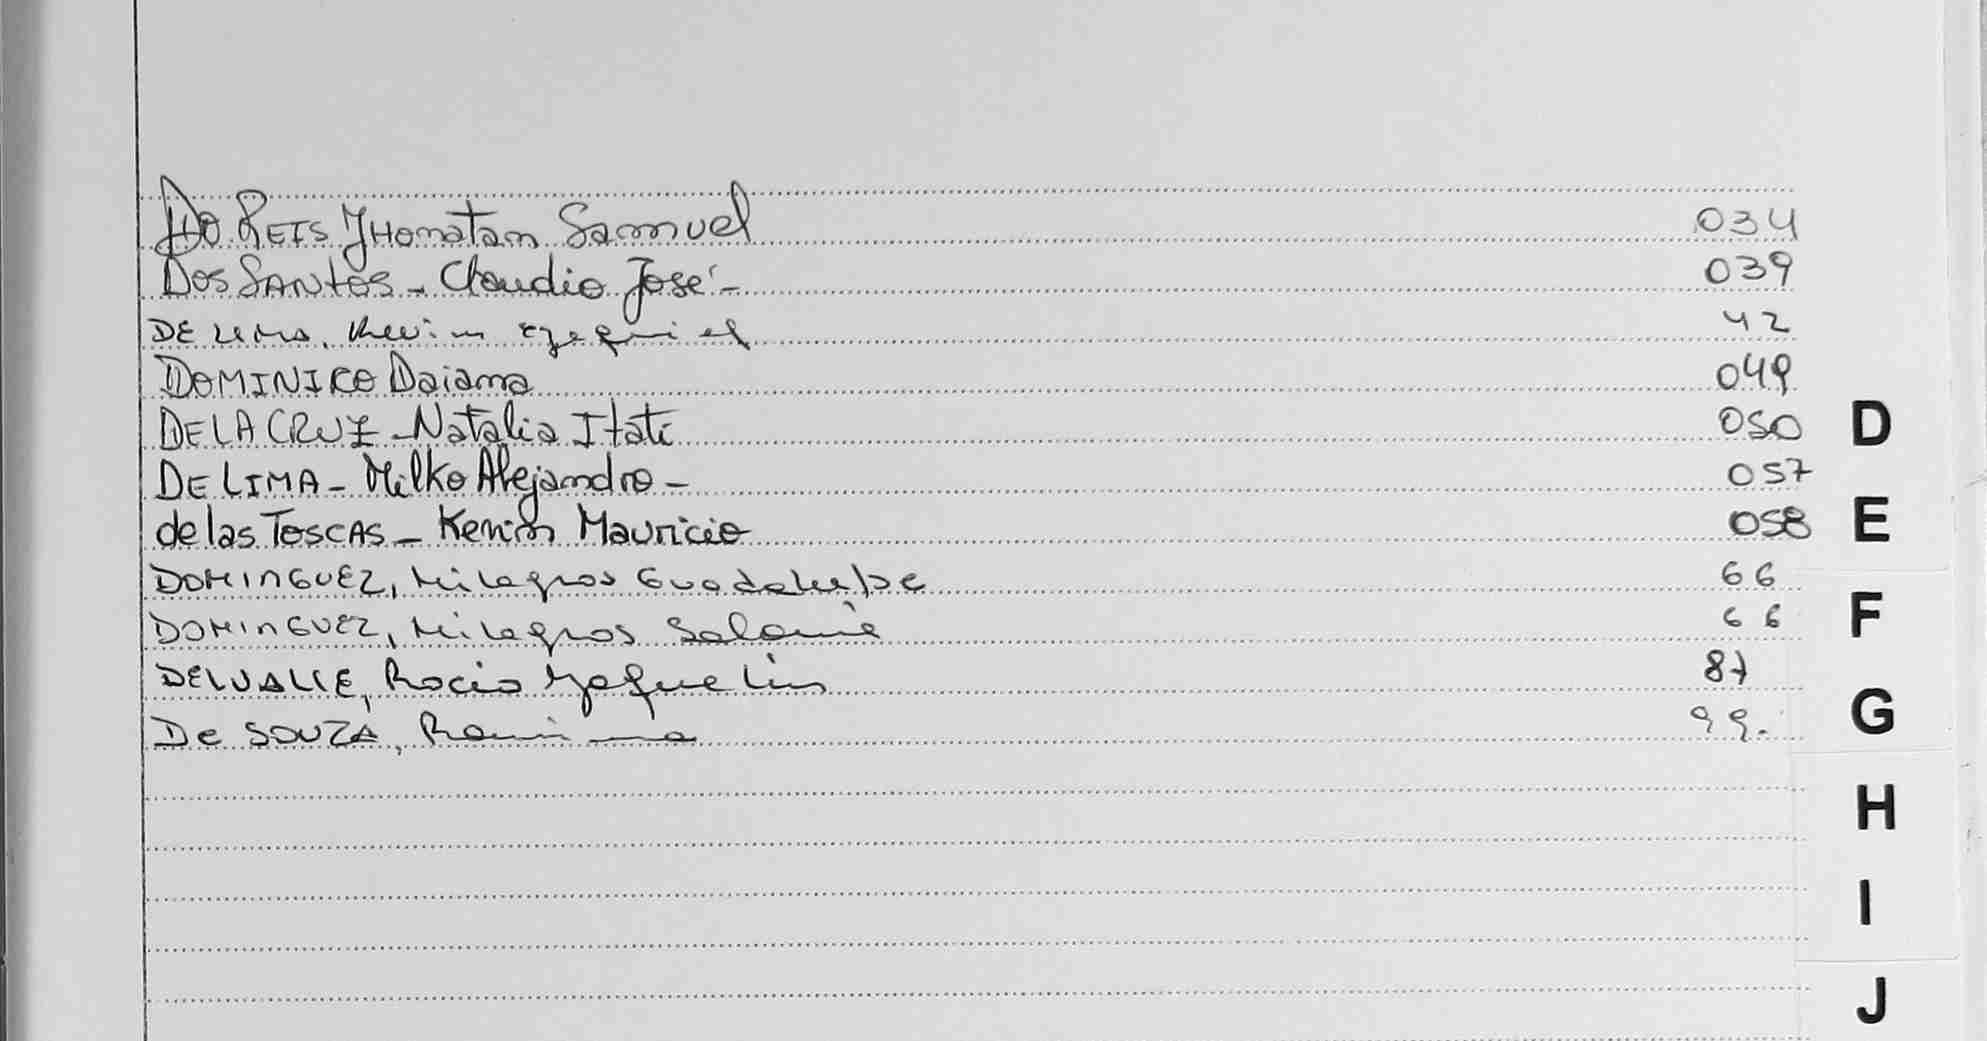 Do Reis Jhonatan Samuel 034
Dos Santos - Claudio José - 039
DE LIMA, Kevin Ezequiel 42
DOMINICO Daiana 049
DE LA CRUZ - Natalia Itati 050
D
DE LIMA - Milko Alejandro - 057
de las Toscas - Kevin Mauricio 058
E
DOMINGUEZ, Milagros Guadalupe 66
DOMINGUEZ, Milagros Salomè 66
F
DELVALLE, Rocio Yaquelin 87
De SOUZA, Romina 99.
G
H
I
J